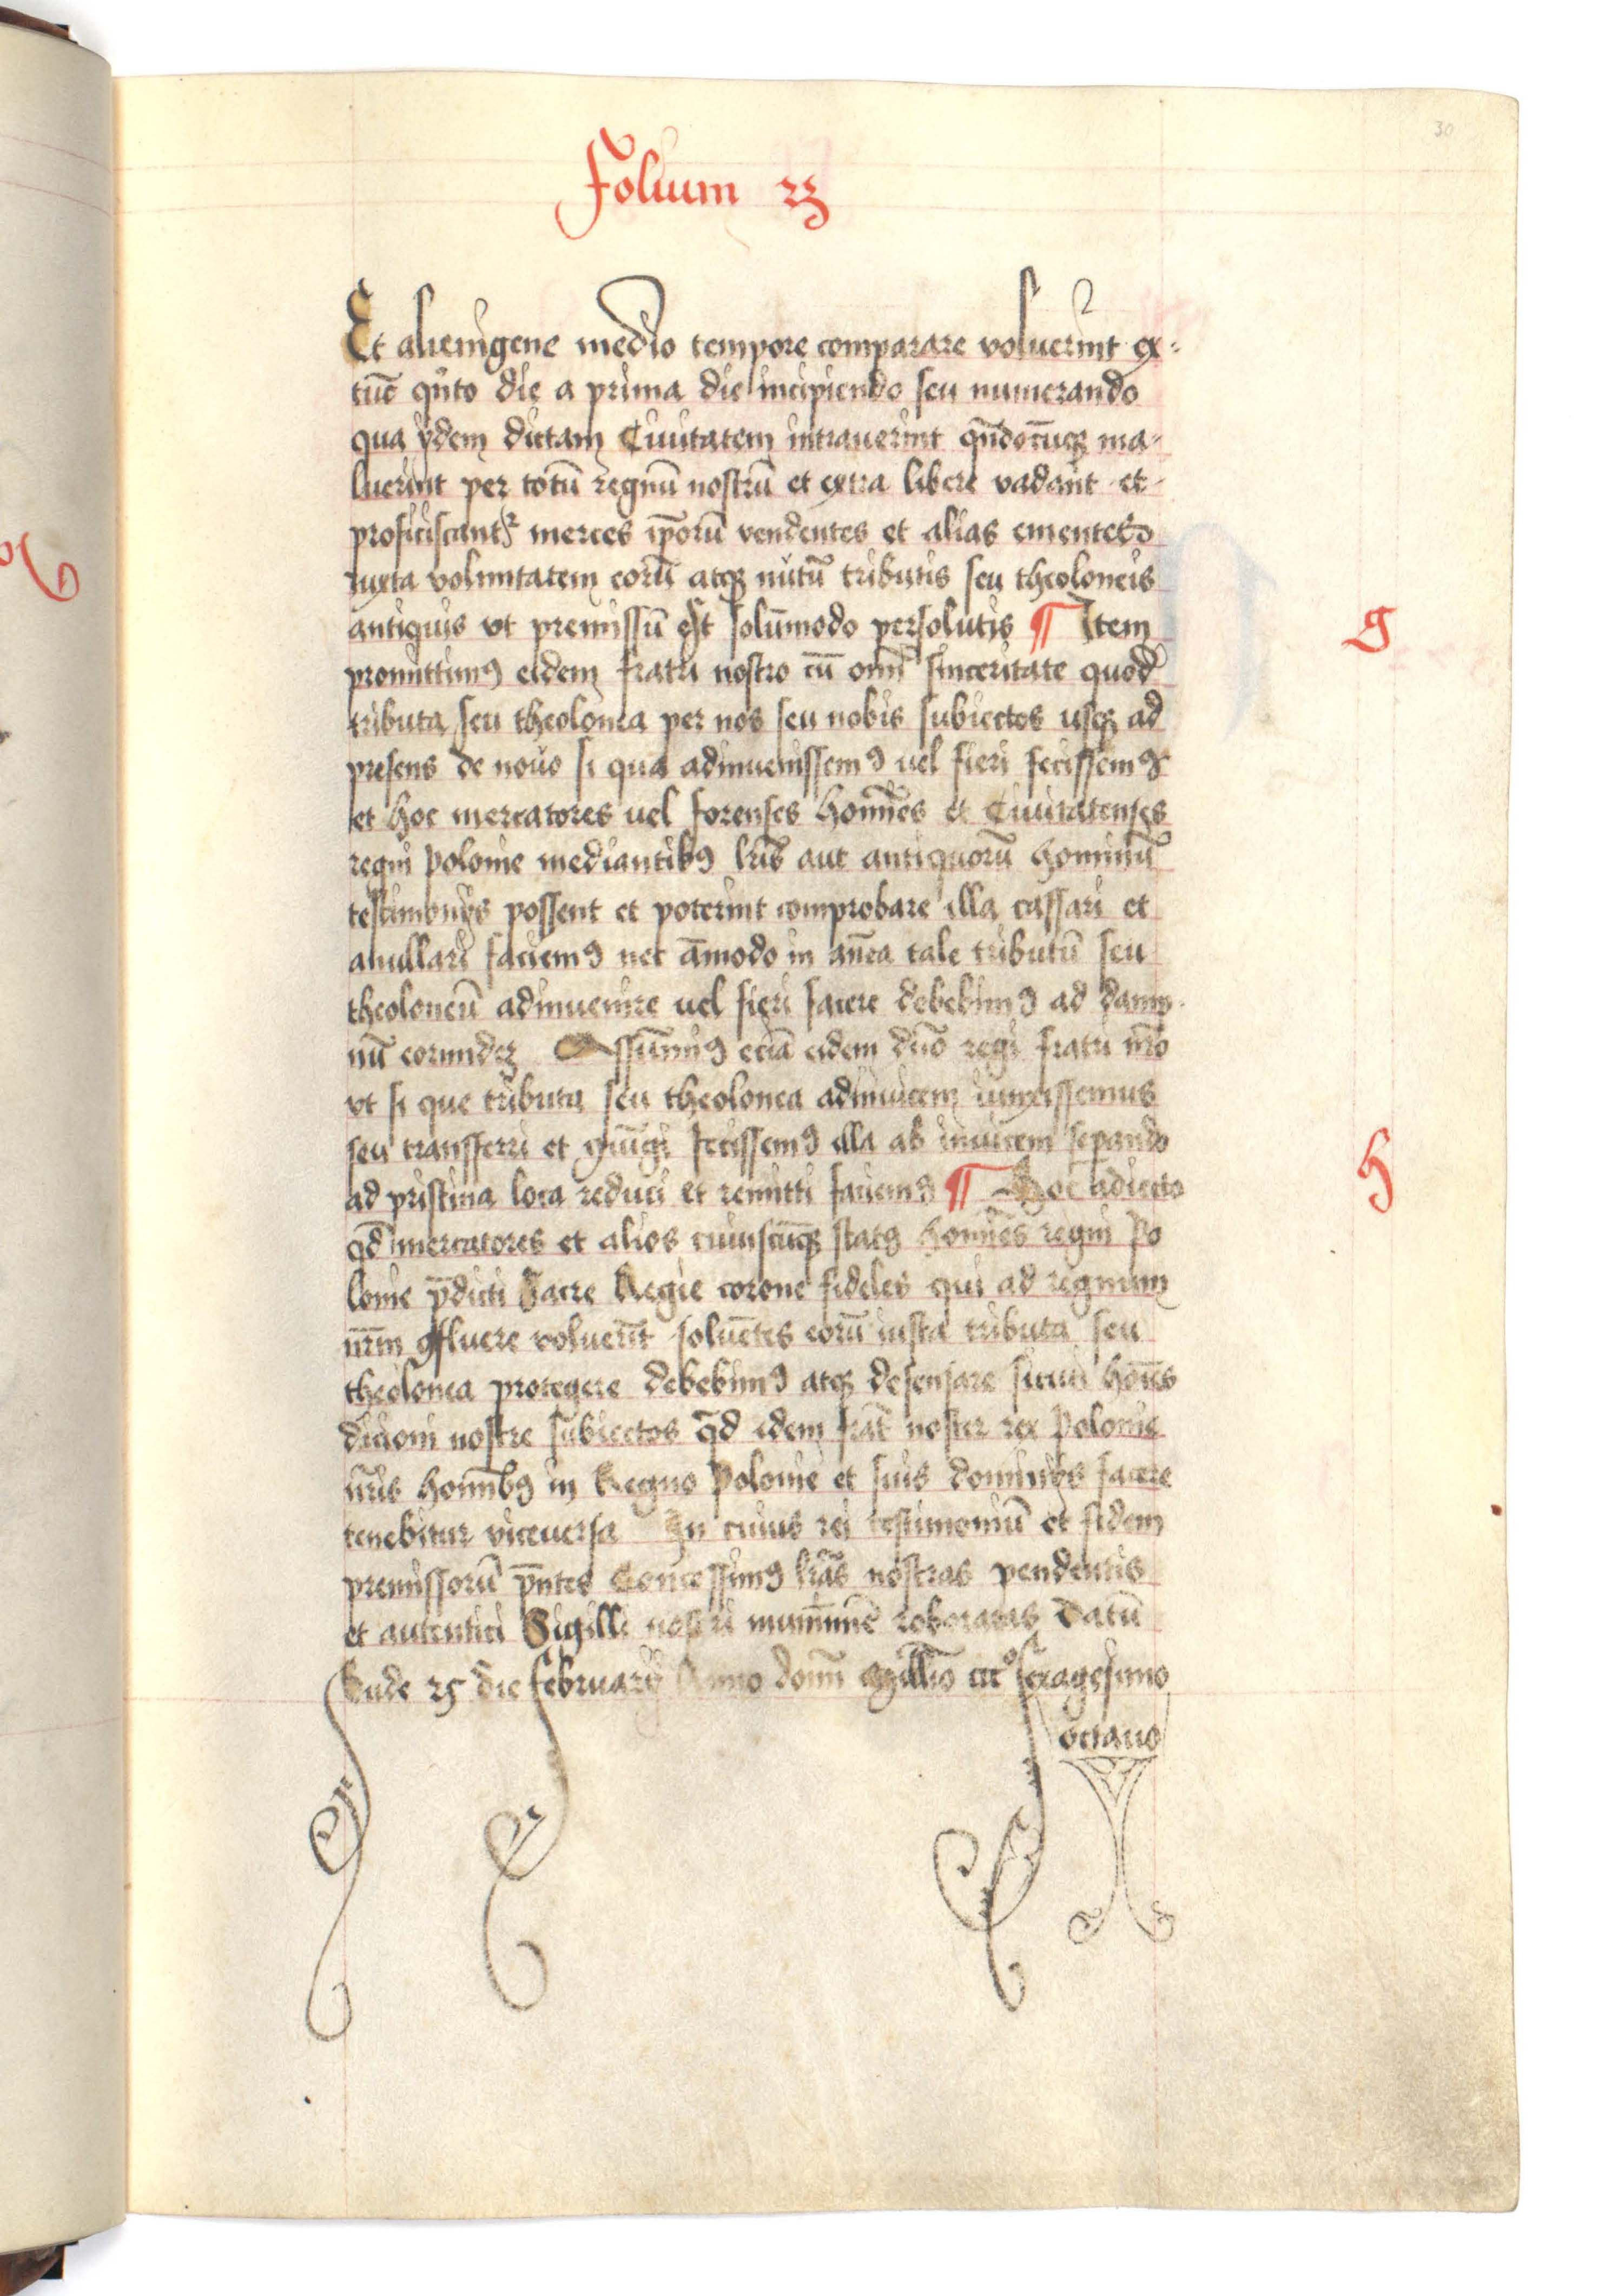 30
Folium 23
Et alienigene medio tempore comparare voluerint ex-
tūc qn̄to die a prima die incipiendo seu numerando
qua ÿdem dictam Ciuitatem intrauerint qn̄docūqꝫ ma-
luerint per totū regnū nostrū et extra libere vadant et
proficiscantᷣ merces ip̄orū vendentes et alias ementes
iuxta voluntatem eorū atqꝫ nutū tributis seu theoloneis
antiquis vt premissū est solūmodo persolutis ¶ Item
g
promittimꝰ eidem fratri nostro cū om̄i sinceritate quod
tributa seu theolonea per nos seu nobis subiectos usqꝫ ad
presens de nouo si qua adinuenissemꝰ uel fieri fecissemꝰ
et hoc mercatores uel forenses hom̄es et Ciuitatenses
regni polonie mediantibꝰ lr̄is aut antiquorū hominū
testimonÿs possent et poterint comprobare illa cassari et
anullari faciemꝰ nec āmodo in an̄ea tale tributū seu
theoloneū adinuenire uel fieri facere debebimꝰ ad damp-
nū eorundeꝫ Assūmimꝰ eciā eidem dn̄o regi fratri nr̄o
vt si que tributa seu theolonea adinuicem iunxissemus
seu transferri et ꝯiūgi fecissemꝰ illa ab inuicem sepando
ad pristina loca reduci et remitti faciemꝰ ¶ Hoc adiecto
h
qd̄ mercatores et alios cuiuscūqꝫ statꝰ homīes regni Po
lonie p̄dicti Sacre Regie corone fideles qui ad regnum
nr̄m ꝯfluere voluerīt soluētes eorū iusta tributa seu
theolonea protegere debebimꝰ atqꝫ defensare sicuti hoīes
dicioni nostre subiectos qd̄ idem frat̄ noster rex Polonie
nr̄is homībꝰ in Regno Polonie et suis dominÿs facere
tenebitur viceuersa In cuius rei testimoniū et fidem
premissorū p̄ntes Concessimꝰ lr̄as nostras pendentis
et autentici Sigilli nostri munimīe roboratas Datū
Bude 25 die februarÿ Anno domī Millīo ccccͦ sexagesimo
octauo